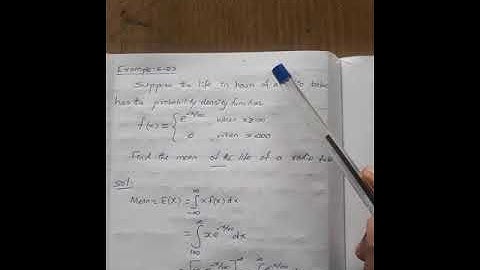 Example:
Suppose the life in hours of a radio tube
has the probability density function
f(x) = { e^{-x/100} when x≥100
0 when x<100
Find the mean of the life of a radio tube
Sol:
Mean = E(X) = ∫_{-∞}^{∞} x f(x) dx
= ∫_{100}^{∞} x e^{-x/100} dx